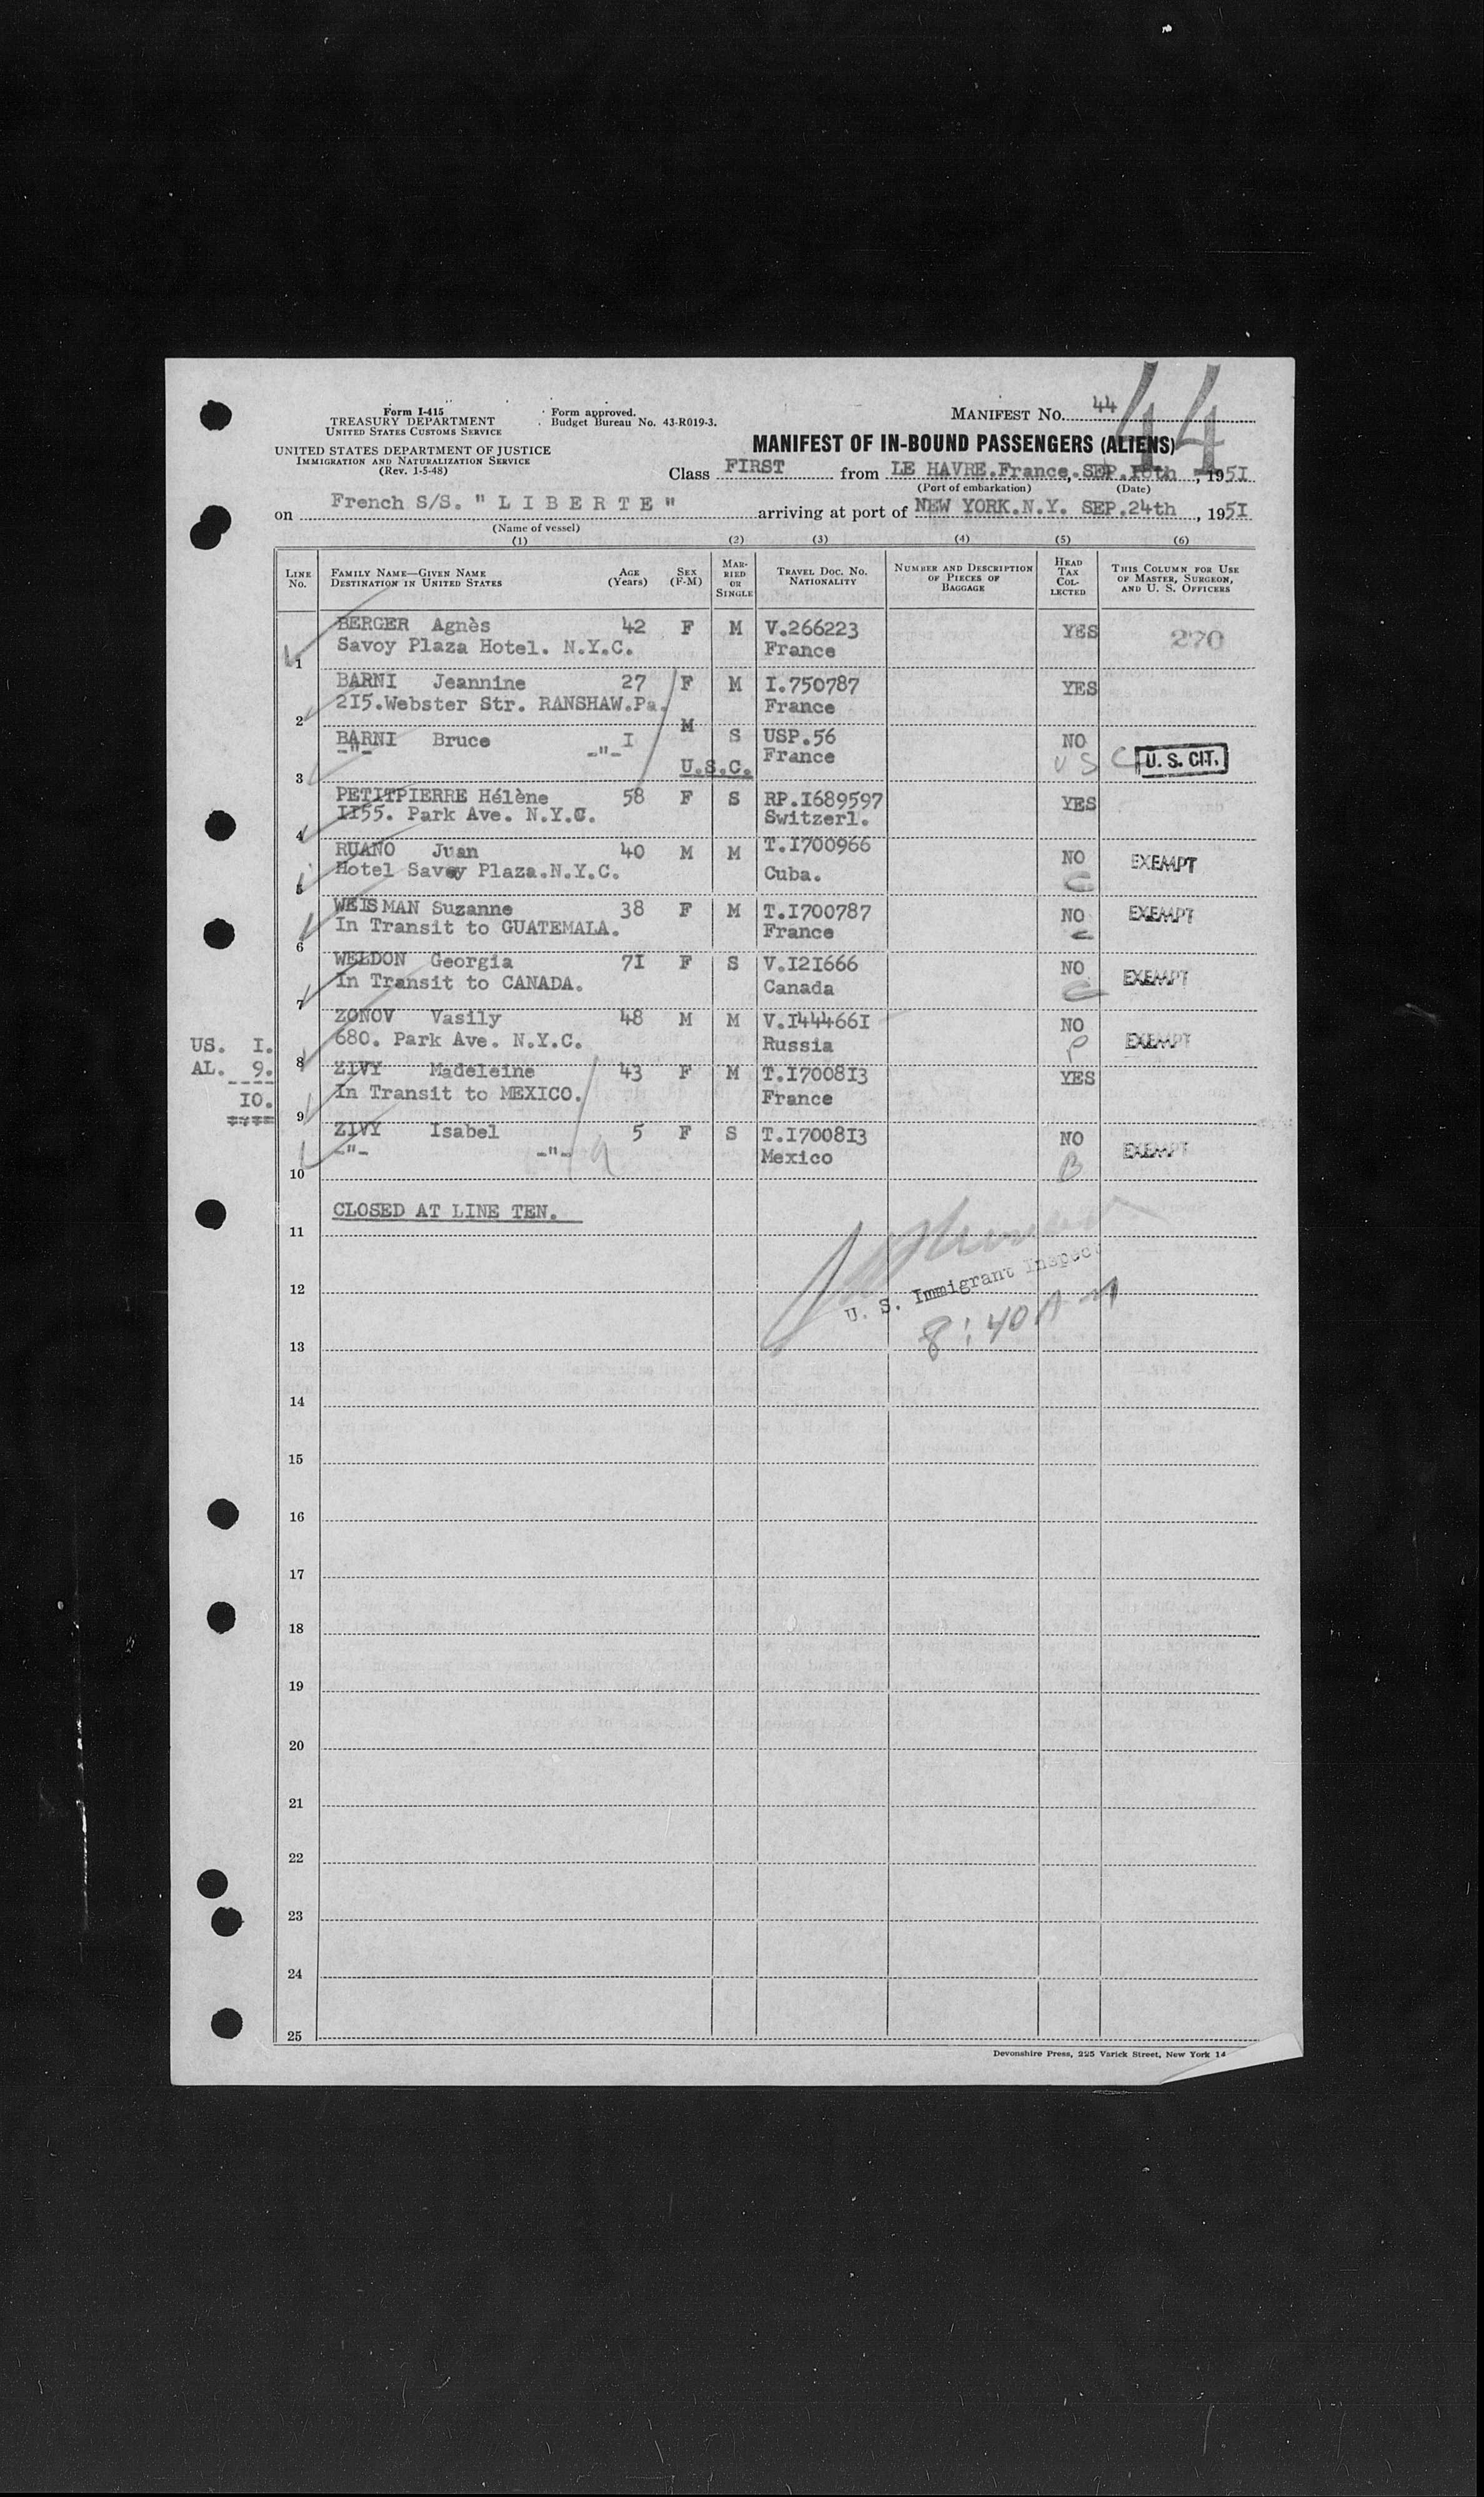 Form I-415
TREASURY DEPARTMENT
UNITED STATES CUSTOMS SERVICE
UNITED STATES DEPARTMENT OF JUSTICE
IMMIGRATION AND NATURALIZATION SERVICE
(Rev. 1-5-48)
Form approved.
Budget Bureau No. 43-R019-3.
MANIFEST No. 44
44
MANIFEST OF IN-BOUND PASSENGERS (ALIENS)
Class FIRST from LE HAVRE.France, SEP. , 1951
(Port of embarkation) (Date)
on French S/S. " L I B E R T E " arriving at port of NEW YORK.N.Y. SEP.24th , 1951
(Name of vessel)
(1) (2) (3) (4) (5) (6)
LINE No. FAMILY NAME—GIVEN NAME DESTINATION IN UNITED STATES AGE (Years) SEX (F-M) MARRIED OR SINGLE TRAVEL DOC. NO. NATIONALITY NUMBER AND DESCRIPTION OF PIECES OF BAGGAGE HEAD TAX COLLECTED THIS COLUMN FOR USE OF MASTER, SURGEON, AND U. S. OFFICERS
BERGER Agnès 42 F M V.266223 YES 270
1 Savoy Plaza Hotel. N.Y.C. France
BARNI Jeannine 27 F M I.750787 YES
2 215.Webster Str. RANSHAW.Pa. France
BARNI Bruce I M S USP.56 NO
3 -"- -"- U.S.C. France U S C U. S. CIT.
PETITPIERRE Hélène 58 F S RP.I689597 YES
4 II55. Park Ave. N.Y.C. Switzerl.
RUANO Juan 40 M M T.I700966 NO EXEMPT
5 Hotel Savoy Plaza.N.Y.C. Cuba.
WEISMAN Suzanne 38 F M T.I700787 NO EXEMPT
6 In Transit to GUATEMALA. France
WELDON Georgia 7I F S V.I2I666 NO EXEMPT
7 In Transit to CANADA. Canada
ZONOV Vasily 48 M M V.I44466I NO EXEMPT
8 680. Park Ave. N.Y.C. Russia P
US. I.
AL. 9.
----
10.
====
ZIVY Madeleine 43 F M T.I7008I3 YES
9 In Transit to MEXICO. France
ZIVY Isabel 5 F S T.I7008I3 NO EXEMPT
10 -"- -"- Mexico B
CLOSED AT LINE TEN.
11
12 U. S. Immigrant Inspect
8:40 AM
13
14
15
16
17
18
19
20
21
22
23
24
25
Devonshire Press, 225 Varick Street, New York 14